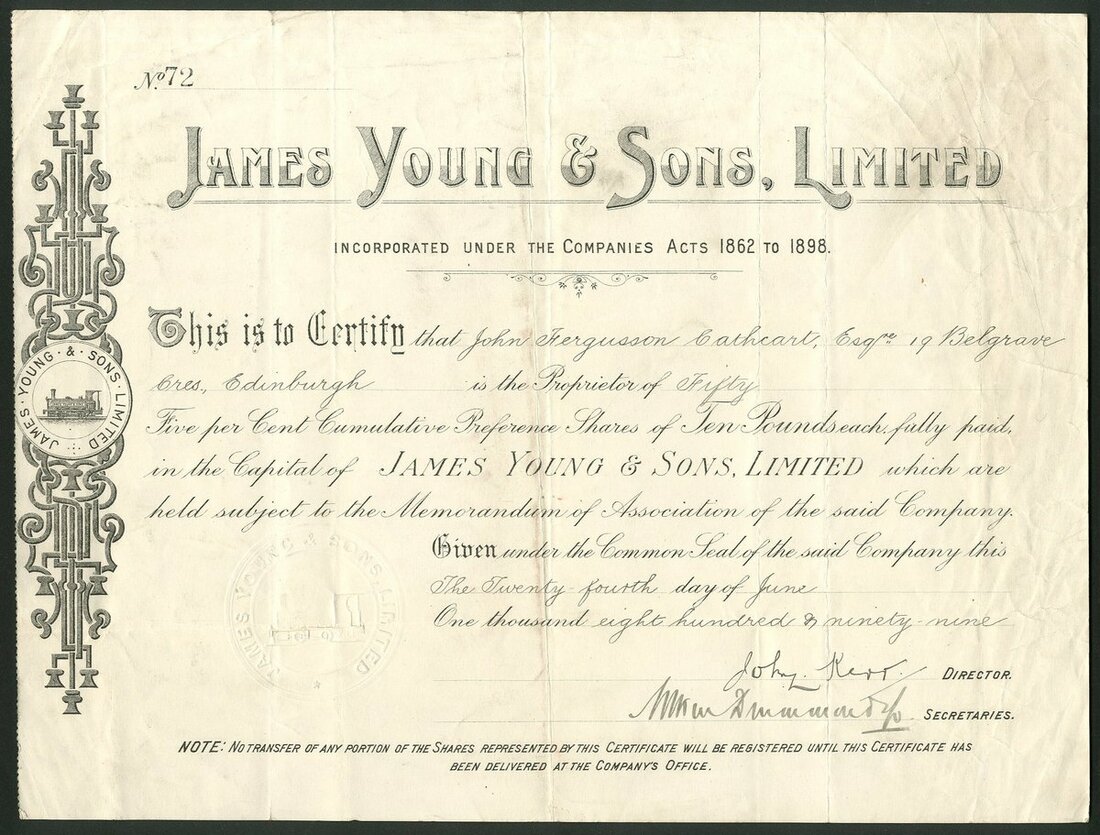 No 72
JAMES YOUNG & SONS, LIMITED
INCORPORATED UNDER THE COMPANIES ACTS 1862 TO 1898.
This is to Certify that John Fergusson Cathcart, Esqre 19 Belgrave
Cres., Edinburgh is the Proprietor of Fifty
Five per Cent Cumulative Preference Shares of Ten Pounds each, fully paid,
in the Capital of JAMES YOUNG & SONS, LIMITED which are
held subject to the Memorandum of Association of the said Company.
Given under the Common Seal of the said Company this
The Twenty-fourth day of June
One thousand eight hundred & ninety-nine
John Kerr. DIRECTOR.
Drummond & Co SECRETARIES.
NOTE: NO TRANSFER OF ANY PORTION OF THE SHARES REPRESENTED BY THIS CERTIFICATE WILL BE REGISTERED UNTIL THIS CERTIFICATE HAS
BEEN DELIVERED AT THE COMPANY'S OFFICE.
JAMES · YOUNG · & · SONS · LIMITED
JAMES YOUNG & SONS. LIMITED